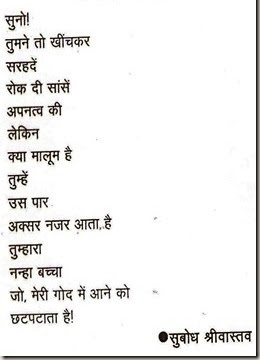 सुनो!
तुमने तो खींचकर
सरहदें
रोक दी सांसें
अपनत्व की
लेकिन
क्या मालूम है
तुम्हें
उस पार
अक्सर नजर आता है
तुम्हारा
नन्हा बच्चा
जो, मेरी गोद में आने को
छटपटाता है!
●सुबोध श्रीवास्तव